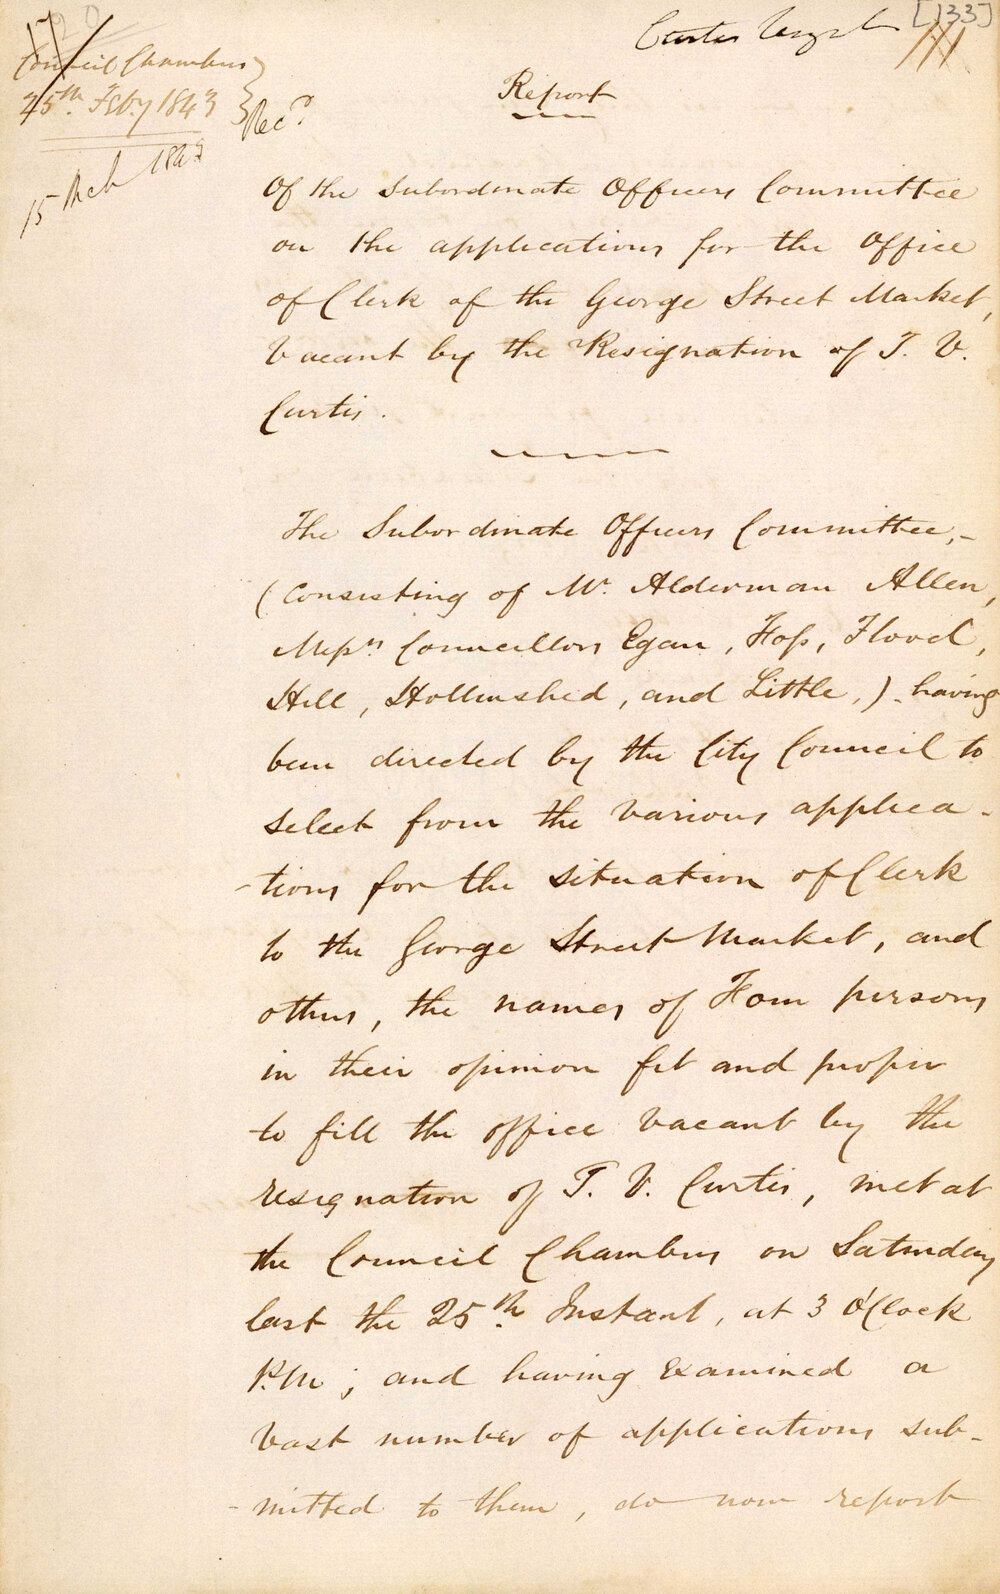 [133]
Council Chambers
25th. Feby 1843
Recd.
15 March 1843
Report
Of the Subordinate Officers Committee
on the applications for the Office
of Clerk of the George Street Market,
Vacant by the Resignation of T. V.
Curtis.
The Subordinate Officers Committee,-
(consisting of Mr. Alderman Allen,
Messrs Councillors Egan, Foss, Flood,
Hill, Hollinshed, and Little,) having
been directed by the City Council to
select from the various applica-
-tions for the situation of Clerk
to the George Street Market, and
others, the names of Four persons
in their opinion fit and proper
to fill the office vacant by the
resignation of T. V. Curtis, met at
the Council Chambers on Saturday
last the 25th. Instant, at 3 O'Clock
P.M; and having examined a
vast number of applications sub-
-mitted to them, do now report